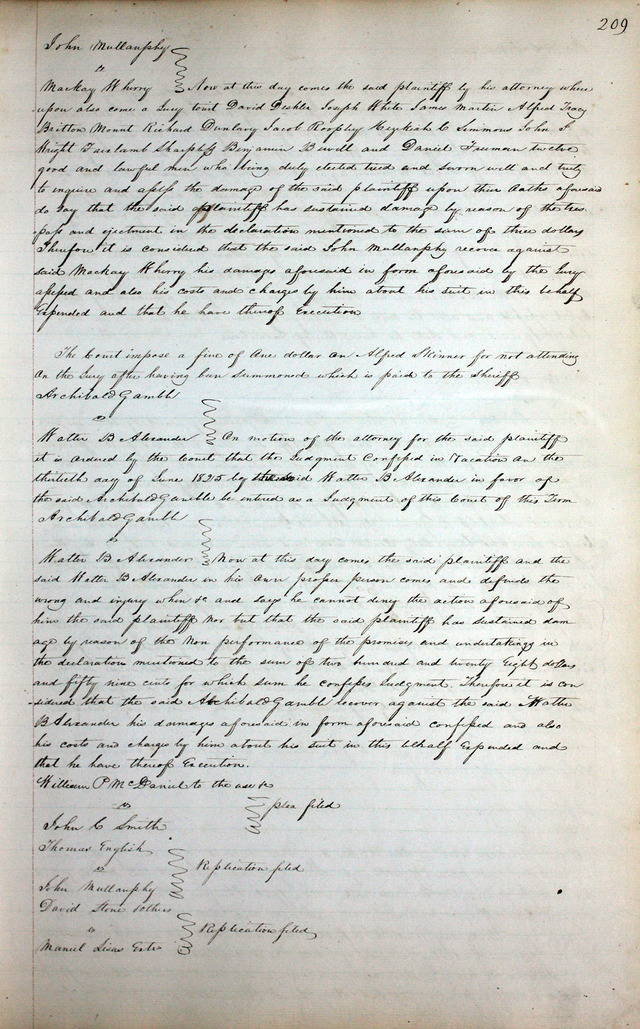 209
John Mullanphy
vs
Mackay Wherry } Now at this day comes the said plaintiff by his attorney where
upon also come a Jury towit David Deshler Joseph White James Martin Alfred Tracy
Britton Mount Richard Dunlavy Jacob Hezekiah C Simmons John F
Wright Benjamin and Daniel Freeman twelve
good and lawful men who being duly elected tried and sworn well and truly
to inquire and assess the damage of the said plaintiff upon their Oaths aforesaid
do say that the said plaintiff has sustained damage by reason of the tres
pass and ejectment in the declaration mentioned to the sum of three dollars
Therefore it is considered that the said John Mullanphy recover against
said Mackay Wherry his damages aforesaid in form aforesaid by the Jury
assessed and also his costs and charges by him about his suit in this behalf
Expended and that he have thereof Execution
The Court impose a fine of One dollar on Alfred Skinner for not attending
on the Jury after having been summoned which is paid to the Sheriff
Archibald Gamble
vs
Walter B Alexander } On motion of the attorney for the said plaintiff
it is ordered by the Court that the Judgment Confessed in Vacation on the
thirtieth day of June 1825 by the said Walter B Alexander in favor of
the said Archibald Gamble be entered as a Judgment of this Court of this Term
Archibald Gamble
vs
Walter B Alexander } Now at this day comes the said plaintiff and the
said Walter B Alexander in his own proper person comes and defends the
wrong and injury when &c and says he cannot deny the action aforesaid of
him the said plaintiff Nor but that the said plaintiff has sustained dam
age by reason of the Non performance of the promises and undertakings in
the declaration mentioned to the sum of two hundred and twenty Eight dollars
and fifty nine cents for which sum he confesses Judgment. Therefore it is con
sidered that the said Archibald Gamble recover against the said Walter
B Alexander his damages aforesaid in form aforesaid confessed and also
his costs and charges by him about his suit in this behalf Expended and
that he have thereof Execution.
William P McDaniel to the use &c
vs } plea filed
John C Smith
Thomas English
vs } Replication filed
John Mullanphy
David Stone & others
vs } Replication filed
Manuel Lisas Exrs